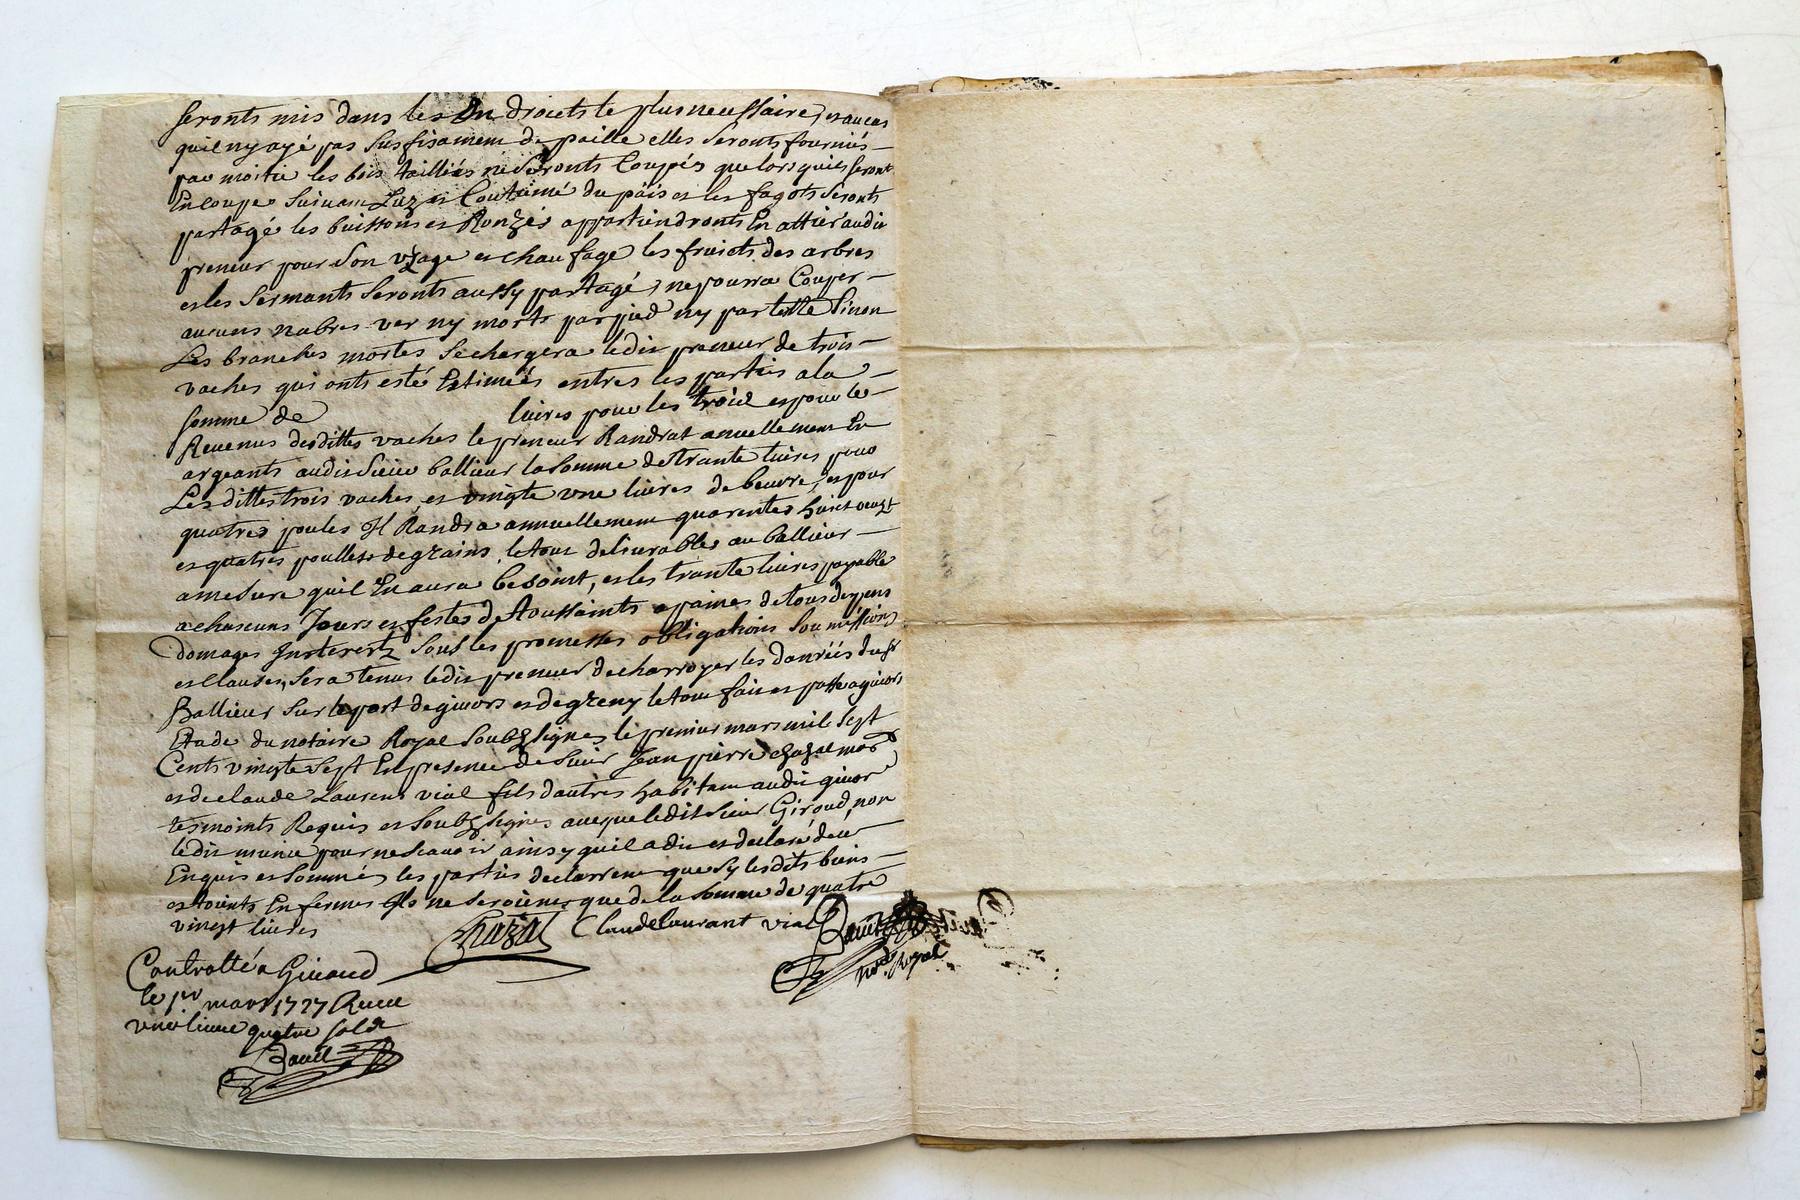 seronts mis dans les Endroicts le plus necessaire, et au cas
quil ny ayé pas susfisament de paille elles seronts fournies
par moitié les bois tailliés ne seronts Coupés que lors quils seront
En coupe suivant Luzet Coutumé du païs et les fagots seronts
partagé les buissons et Ronzes appartiendronts En attier audit
preneur pour son vzage et chaufage les fruicts des arbres
et les sermants seronts aussy partagé, ne pourra Couper
aucuns nabres ver ny morts par pied ny par teste sinon
Les branches mortes se chargera ledit preneur de trois
vaches qui onts esté Estimées entres les parties a la
somme de livres pour les trois et pour le
Revenus desdittes vaches le preneur Randrat anuellement En
argeants audit sieur ballieur la somme de trante livres pour
Les dittes trois vaches et vingte une livres de beurre, et pour
quatres poules Il Randra annuellement quarentes huict oeuzt
et quatres poullets de grains le tout delivrables au ballieur
a mesure quil En aura besoint, et les trante livres payable
a chascuns Jours et festes de toussaints a paines de tous depens
domages Insterertz sous les promesses obligations soumissions
et Clauses, sera tenus ledit preneur de charroyer les danréés dudt sr
Ballieur sur le port de givors et de greny le tout fait et passé a givors
Etude du notaire Royal soubz signes le premier mars mil sept
Cents vingte sept En presence de sieur Jean pierre chazal mar
et de claude Laurent vial fils d'autres habitant audit givor
tesmoints Requis et soubz signes avec que ledit sieur Giroud, non
ledit munié pour ne scavoir ainsy quil a dit et declaré deu
Enquis et sommés les parties declarrent que sy les dits biens
estoints En fermes Ils ne seroient que de la somme de quatre
vingt livres
Chazal Claude laurant vial Bauet
nore Royal
Controllé a Givord
le 1er mars 1727 Receu
une livre quatre sols
Bauet